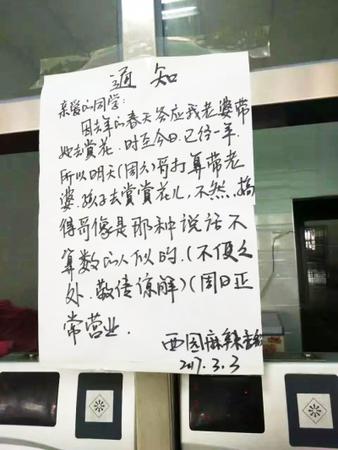 通知
亲爱的同学:
因去年的春天答应我老婆带
她去赏花.时至今日.已经一年.
所以明天(周六)哥打算带老
婆.孩子去赏赏花儿.不然.搞
得哥像是那种说话不
算数的人似的.(不便之
处.敬请谅解)(周日正
常营业.
西园麻辣香锅
2017.3.3